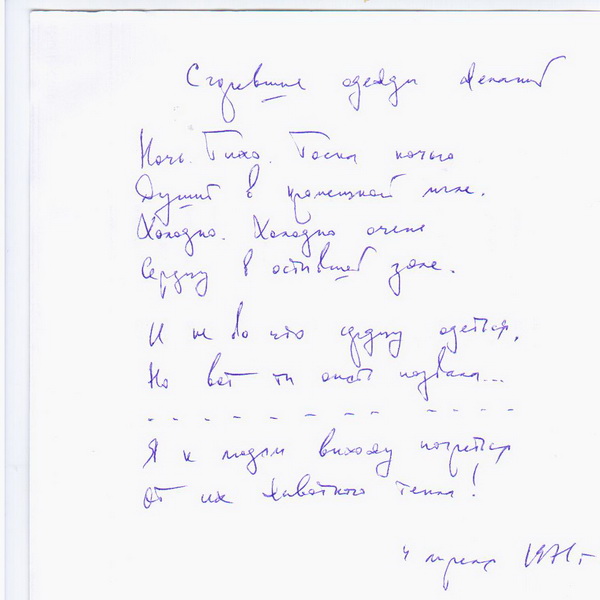 Сгоревшие одежды желаний
Ночь. Тихо. Тоска ночью
Душит в кромешной мгле.
Холодно. Холодно очень
Сердцу в остывшей золе.
И не во что сердцу одеться,
Но вот ты опять позвала...
- - - - - - - - - - - -
Я к людям выхожу погреться
От их животного тепла!
4 апреля 1971 г